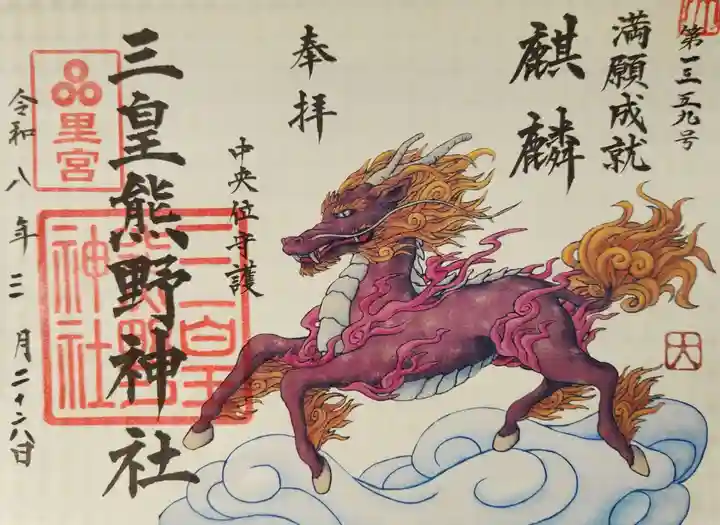 第一三五九号
満願成就
麒麟
奉拝
中央位守護
三皇熊野神社
里宮
三皇熊野神社
令和八年三月二十八日